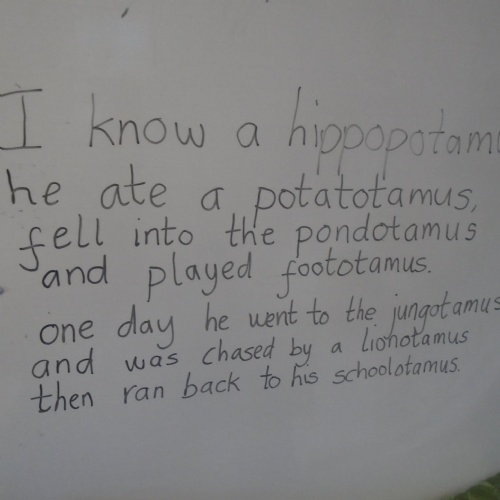 I know a hippopotamu
he ate a potatotamus,
fell into the pondotamus
and played foototamus.
one day he went to the jungotamus
and was chased by a lionotamus
then ran back to his schoolotamus.